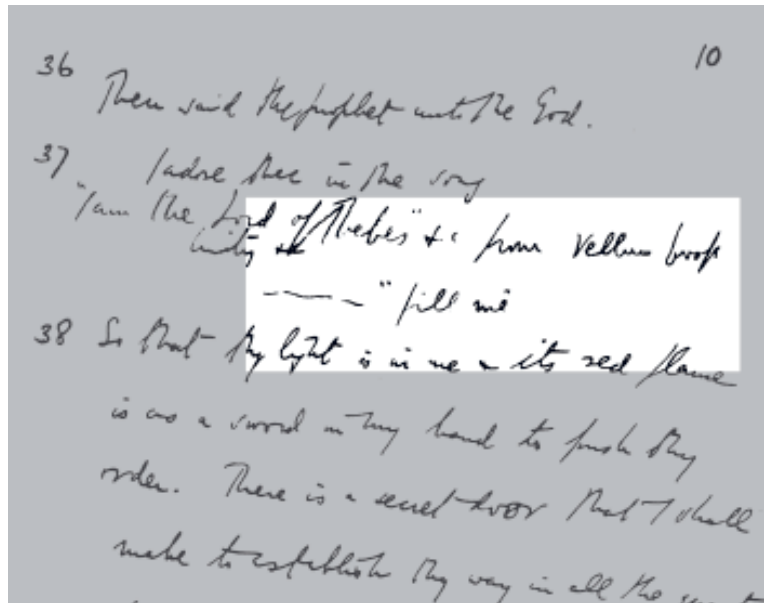 10
36 Then said the prophet unto the God.
37 I adore thee in the song
"I am the Lord of Thebes" &c from vellum book
unity &c
———" fill me
38 So that thy light is in me & its red flame
is as a sword in my hand to push thy
order. There is a secret door that I shall
make to establish thy way in all the